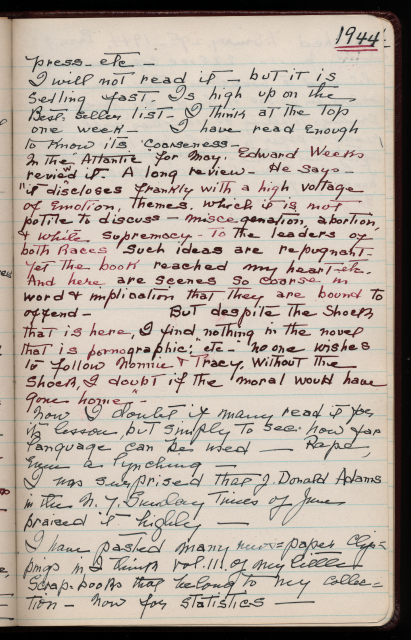 1944
press - etc -
I will not read it - but it is
selling fast. Is high up on the
Best seller list - I think at the top
one week - I have read enough
to know its "coarseness"
In the "Atlantic" for May, Edward Weeks
reviewed it. A long review - He says -
"it discloses frankly with a high voltage
of emotion, themes, which it is not
polite to discuss - miscegenation, abortion,
& white supremacy - To the leaders of
both Races such ideas are repugnant -
Yet the book reached my heart - etc.
And here are scenes so coarse in
word & implication that they are bound to
offend - But despite the Shock
that is here, I find nothing in the novel
that is pornographic;" etc - "no one wishes
to follow Nonnie & Tracy. Without the
Shock, I doubt if the moral would have
gone home" -
Now I doubt if many read it for
its lesson, but simply to see how far
language can be used - Rape,
Even a lynching -
I was surprised that J. Donald Adams
in the N.Y. Sunday Times of June
praised it highly -
I have pasted many news=paper clip=
pings in I think vol. 11. of my little
Scrap-books that belong to my collec=
tion - Now for statistics -